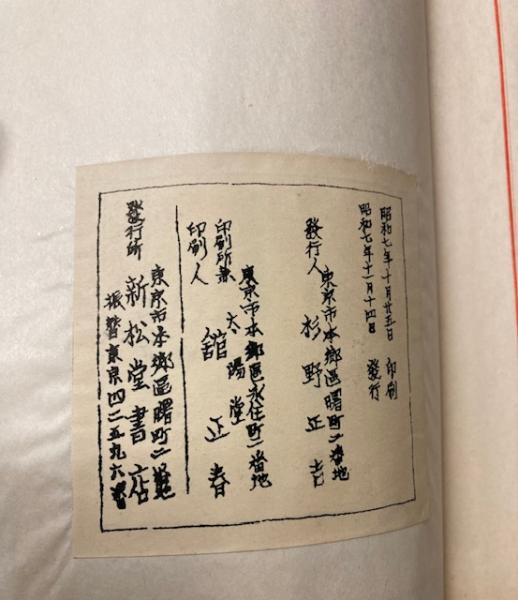 昭和七年十月廿五日 印刷
昭和七年十一月十四日 發行
東京市本鄕區曙町二番地
發行人 杉野正吉
東京市本鄕區永住町一番地
印刷所兼 太陽堂
印刷人 舘正春
東京市本鄕區曙町二番地
發行所 新松堂書店
振替東京四二五九六番